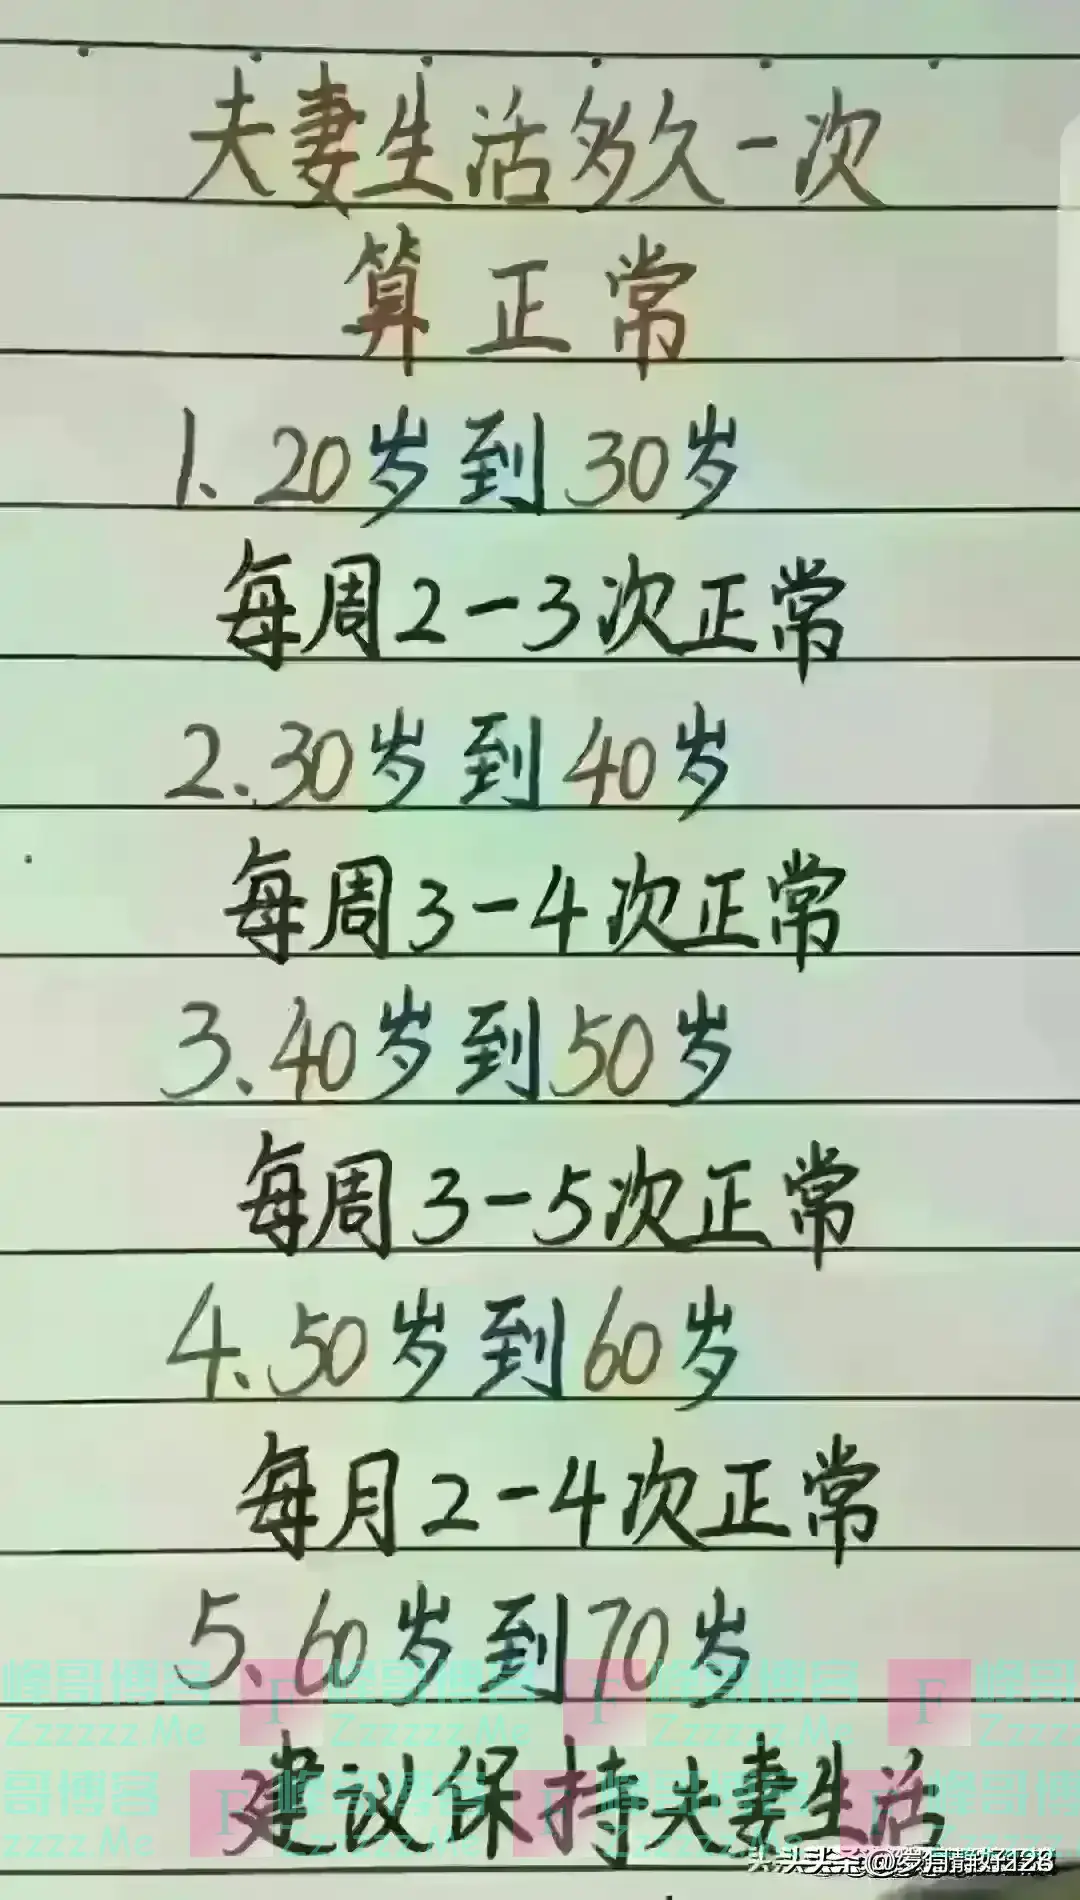 夫妻生活多久一次
算正常
1、20岁到30岁
每周2-3次正常
2、30岁到40岁
每周3-4次正常
3、40岁到50岁
每周3-5次正常
4、50岁到60岁
每月2-4次正常
5、60岁到70岁
峰哥博客 F 峰哥博客 F 峰哥博客 F 峰哥
Zzzzzz.Me Zzzzzz.Me Zzzzzz.Me Zzzzz
建议保持夫妻生活
哥博客 F 峰哥博客 F 峰哥博客 F 峰哥博
zzzz.Me Zzzzzz.Me Zzzzzz.Me
头条 @岁月静好128